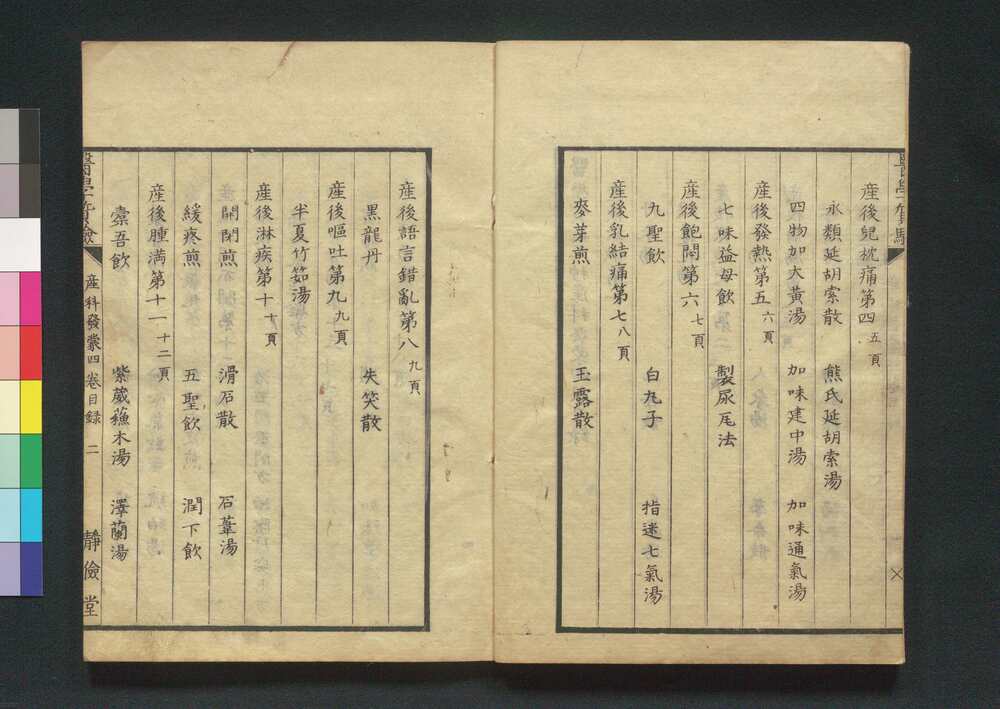 産後兒枕痛第四 五頁
永類延胡索散 熊氏延胡索湯
四物加大黃湯 加味建中湯 加味通氣湯
産後發熱第五 六頁
七味益母飲 製尿尾法
産後飽悶第六 七頁
九聖飲 白丸子 指迷七氣湯
産後乳結痛第七 八頁
麥芽煎 玉露散
産後語言錯亂第八 九頁
黒龍丹 失笑散
産後嘔吐第九 九頁
半夏竹筎湯
産後淋疾第十 十頁
開閉煎 滑石散 石葦湯
緩疼煎 五聖飲 潤下飲
産後腫満第十一 十二頁
橐吾飲 紫葳蘓木湯 澤蘭湯
産科發蒙四卷目録 二
靜儉堂